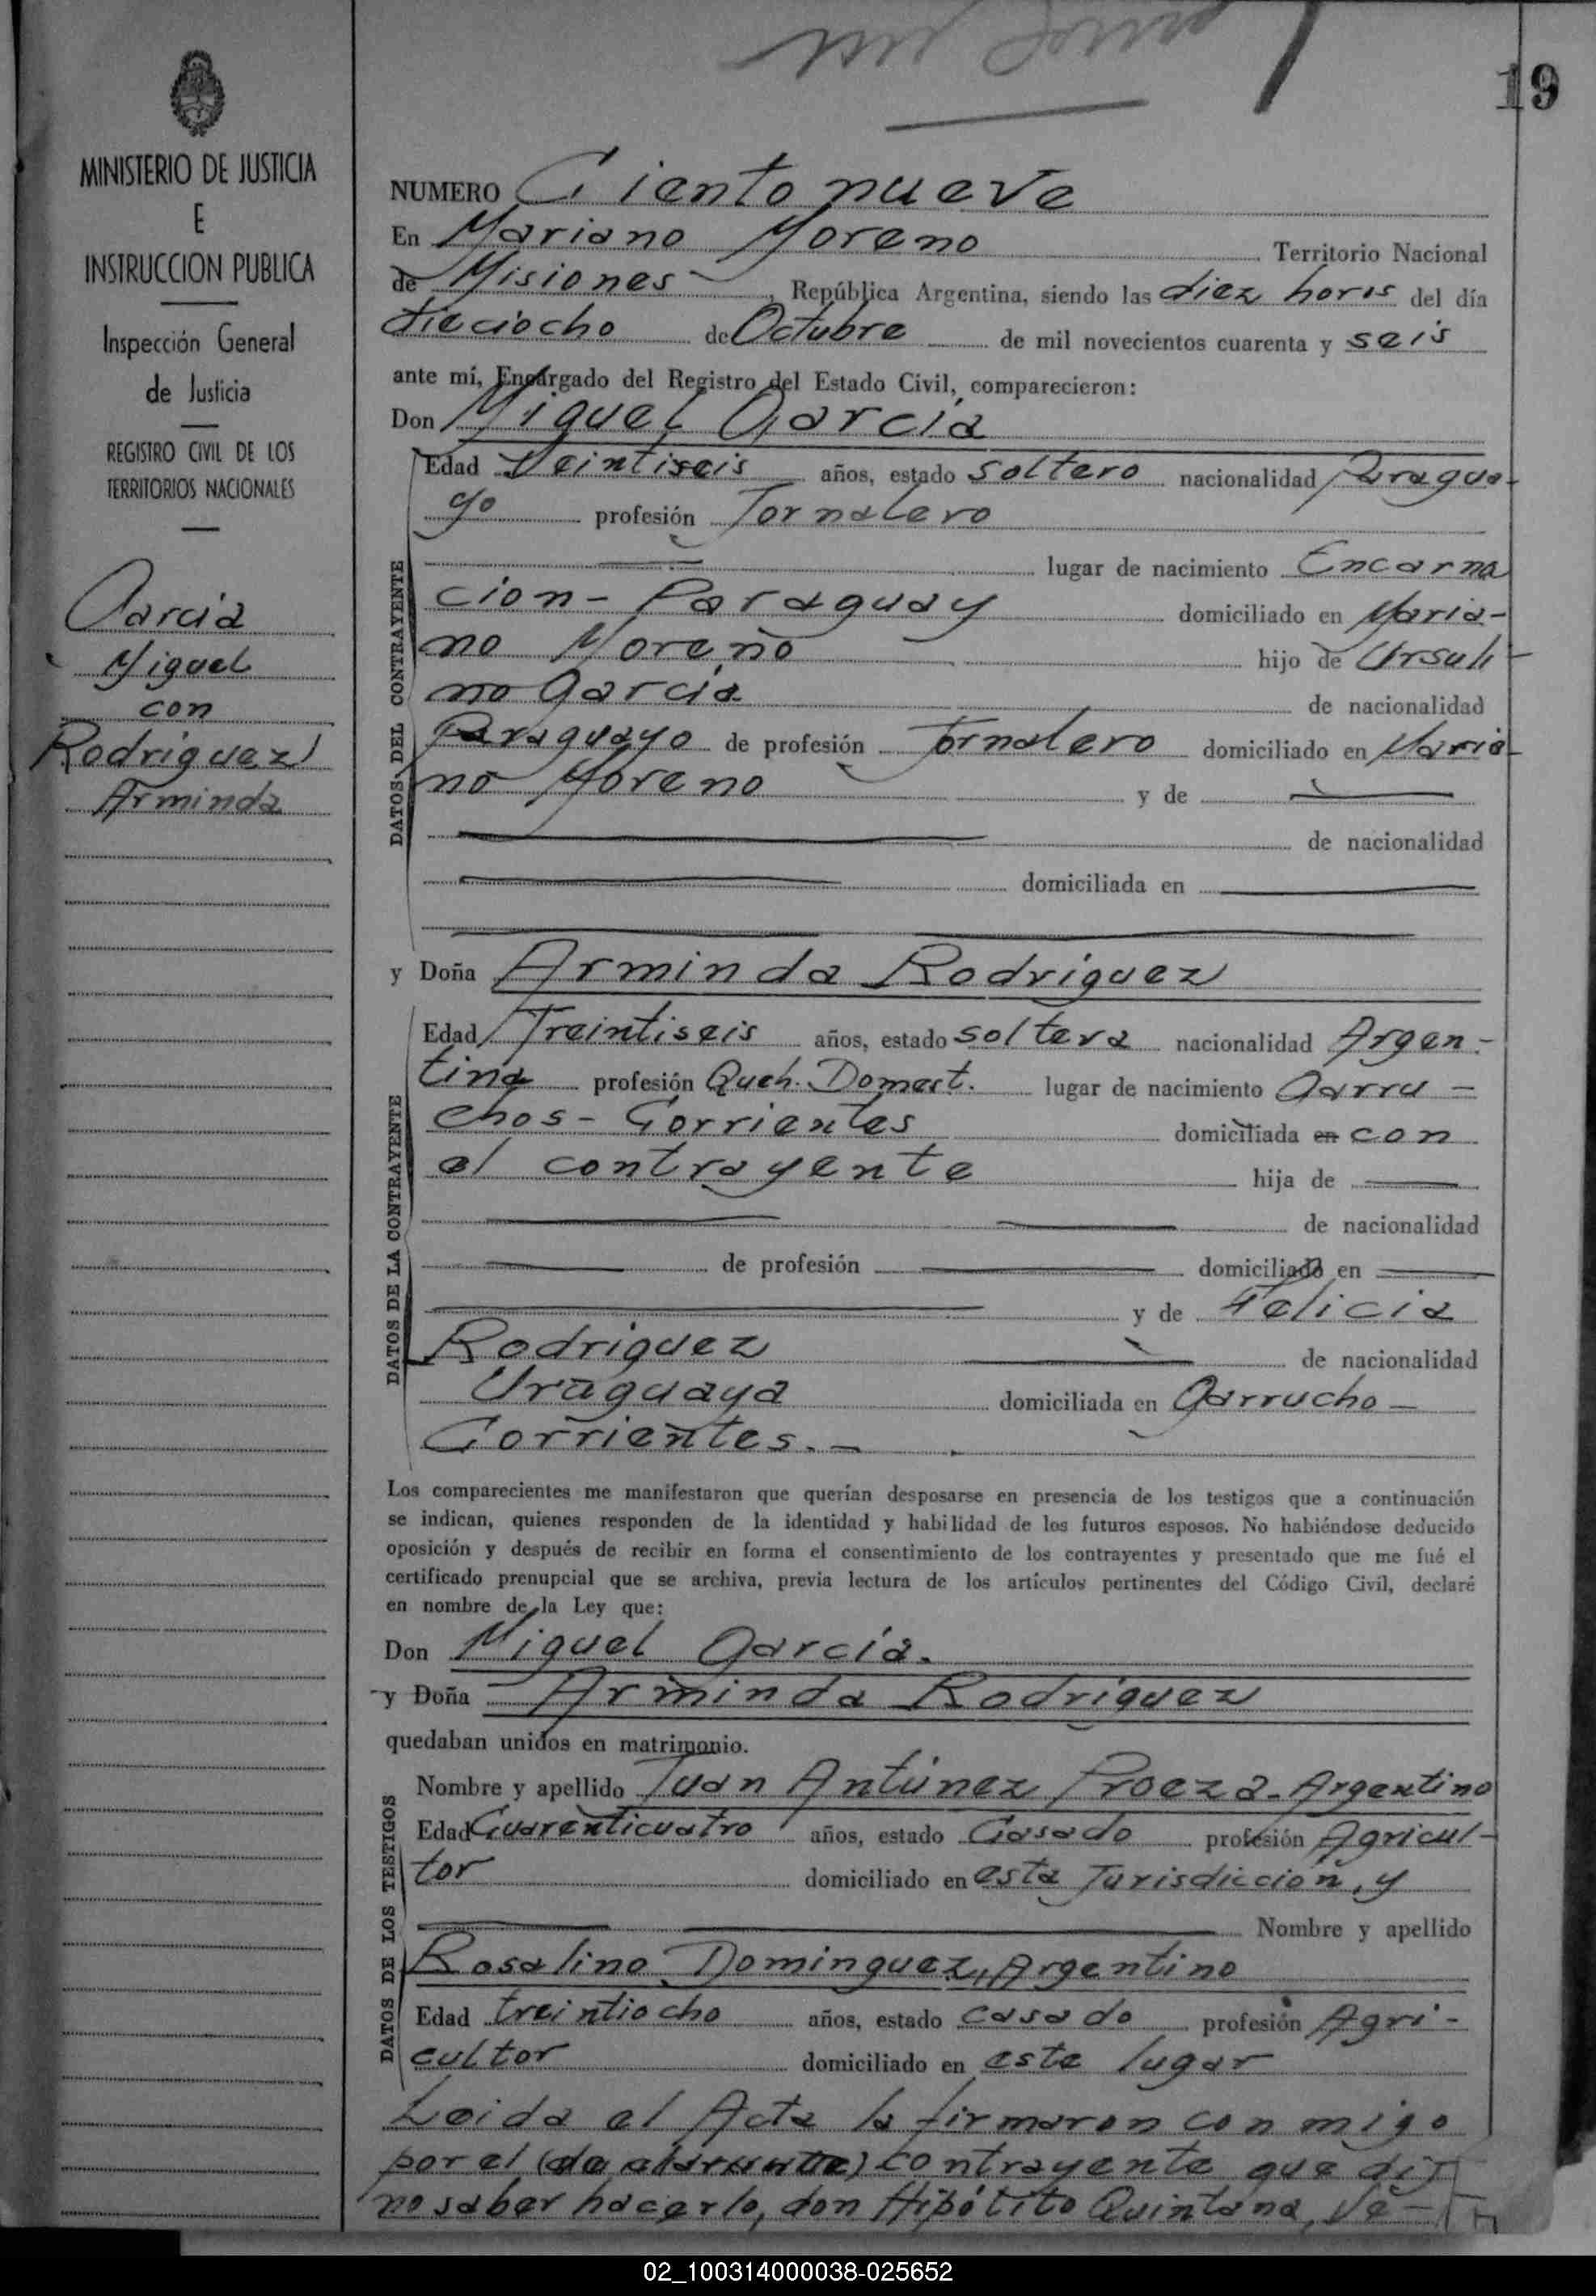 19
MINISTERIO DE JUSTICIA
E
INSTRUCCION PUBLICA
Inspección General
de Justicia
REGISTRO CIVIL DE LOS
TERRITORIOS NACIONALES
Garcia
Miguel
con
Rodriguez
Arminda
NUMERO Ciento nueve
En Mariano Moreno Territorio Nacional
de Misiones, República Argentina, siendo las diez horas del día
dieciocho de Octubre de mil novecientos cuarenta y seis
ante mí, Encargado del Registro del Estado Civil, comparecieron:
Don Miguel García
DATOS DEL CONTRAYENTE
Edad Veintiseis años, estado soltero nacionalidad Paragua-
yo profesión Jornalero
lugar de nacimiento Encarna
cion - Paraguay domiciliado en Maria-
no Moreno hijo de Ursuli-
no Garcia de nacionalidad
Paraguayo de profesión Jornalero domiciliado en Maria-
no Moreno y de
de nacionalidad
domiciliada en
y Doña Arminda Rodriguez
DATOS DE LA CONTRAYENTE
Edad Treintiseis años, estado soltera nacionalidad Argen-
tina profesión Queh. Domest. lugar de nacimiento Garru-
chos - Corrientes domiciliada en con
el contrayente hija de
de nacionalidad
de profesión domiciliado en
y de Felicia
Rodriguez de nacionalidad
Uruguaya domiciliada en Garrucho -
Corrientes. -
Los comparecientes me manifestaron que querían desposarse en presencia de los testigos que a continuación
se indican, quienes responden de la identidad y habilidad de los futuros esposos. No habiéndose deducido
oposición y después de recibir en forma el consentimiento de los contrayentes y presentado que me fué el
certificado prenupcial que se archiva, previa lectura de los artículos pertinentes del Código Civil, declaré
en nombre de la Ley que:
Don Miguel García.
y Doña Arminda Rodriguez
quedaban unidos en matrimonio.
DATOS DE LOS TESTIGOS
Nombre y apellido Juan Antúnez Proeza - Argentino
Edad Cuarenticuatro años, estado Casado profesión Agricul-
tor domiciliado en esta Jurisdicción, y
Nombre y apellido
Rosalino Dominguez, Argentino
Edad treintiocho años, estado casado profesión Agri-
cultor domiciliado en este lugar
Leida el Acta la firmaron con migo
por el contrayente que dij
no saber hacerlo, don Hipólito Quintana, Ve-
02_100314000038-025652